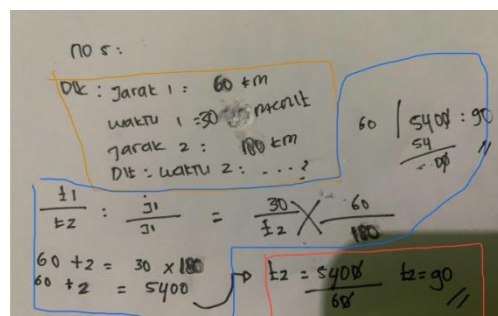 no 5:
Dik : Jarak 1 : 60 km
waktu 1 = 30 menit
Jarak 2 : 180 km
Dit : waktu 2 : ....?
60 / 5400 : 90
54
- 00
t1/t2 : J1/J1 = 30/t2 X 60/180
60 t2 = 30 x 180
60 t2 = 5400
t2 = 5400/60 t2 = 90